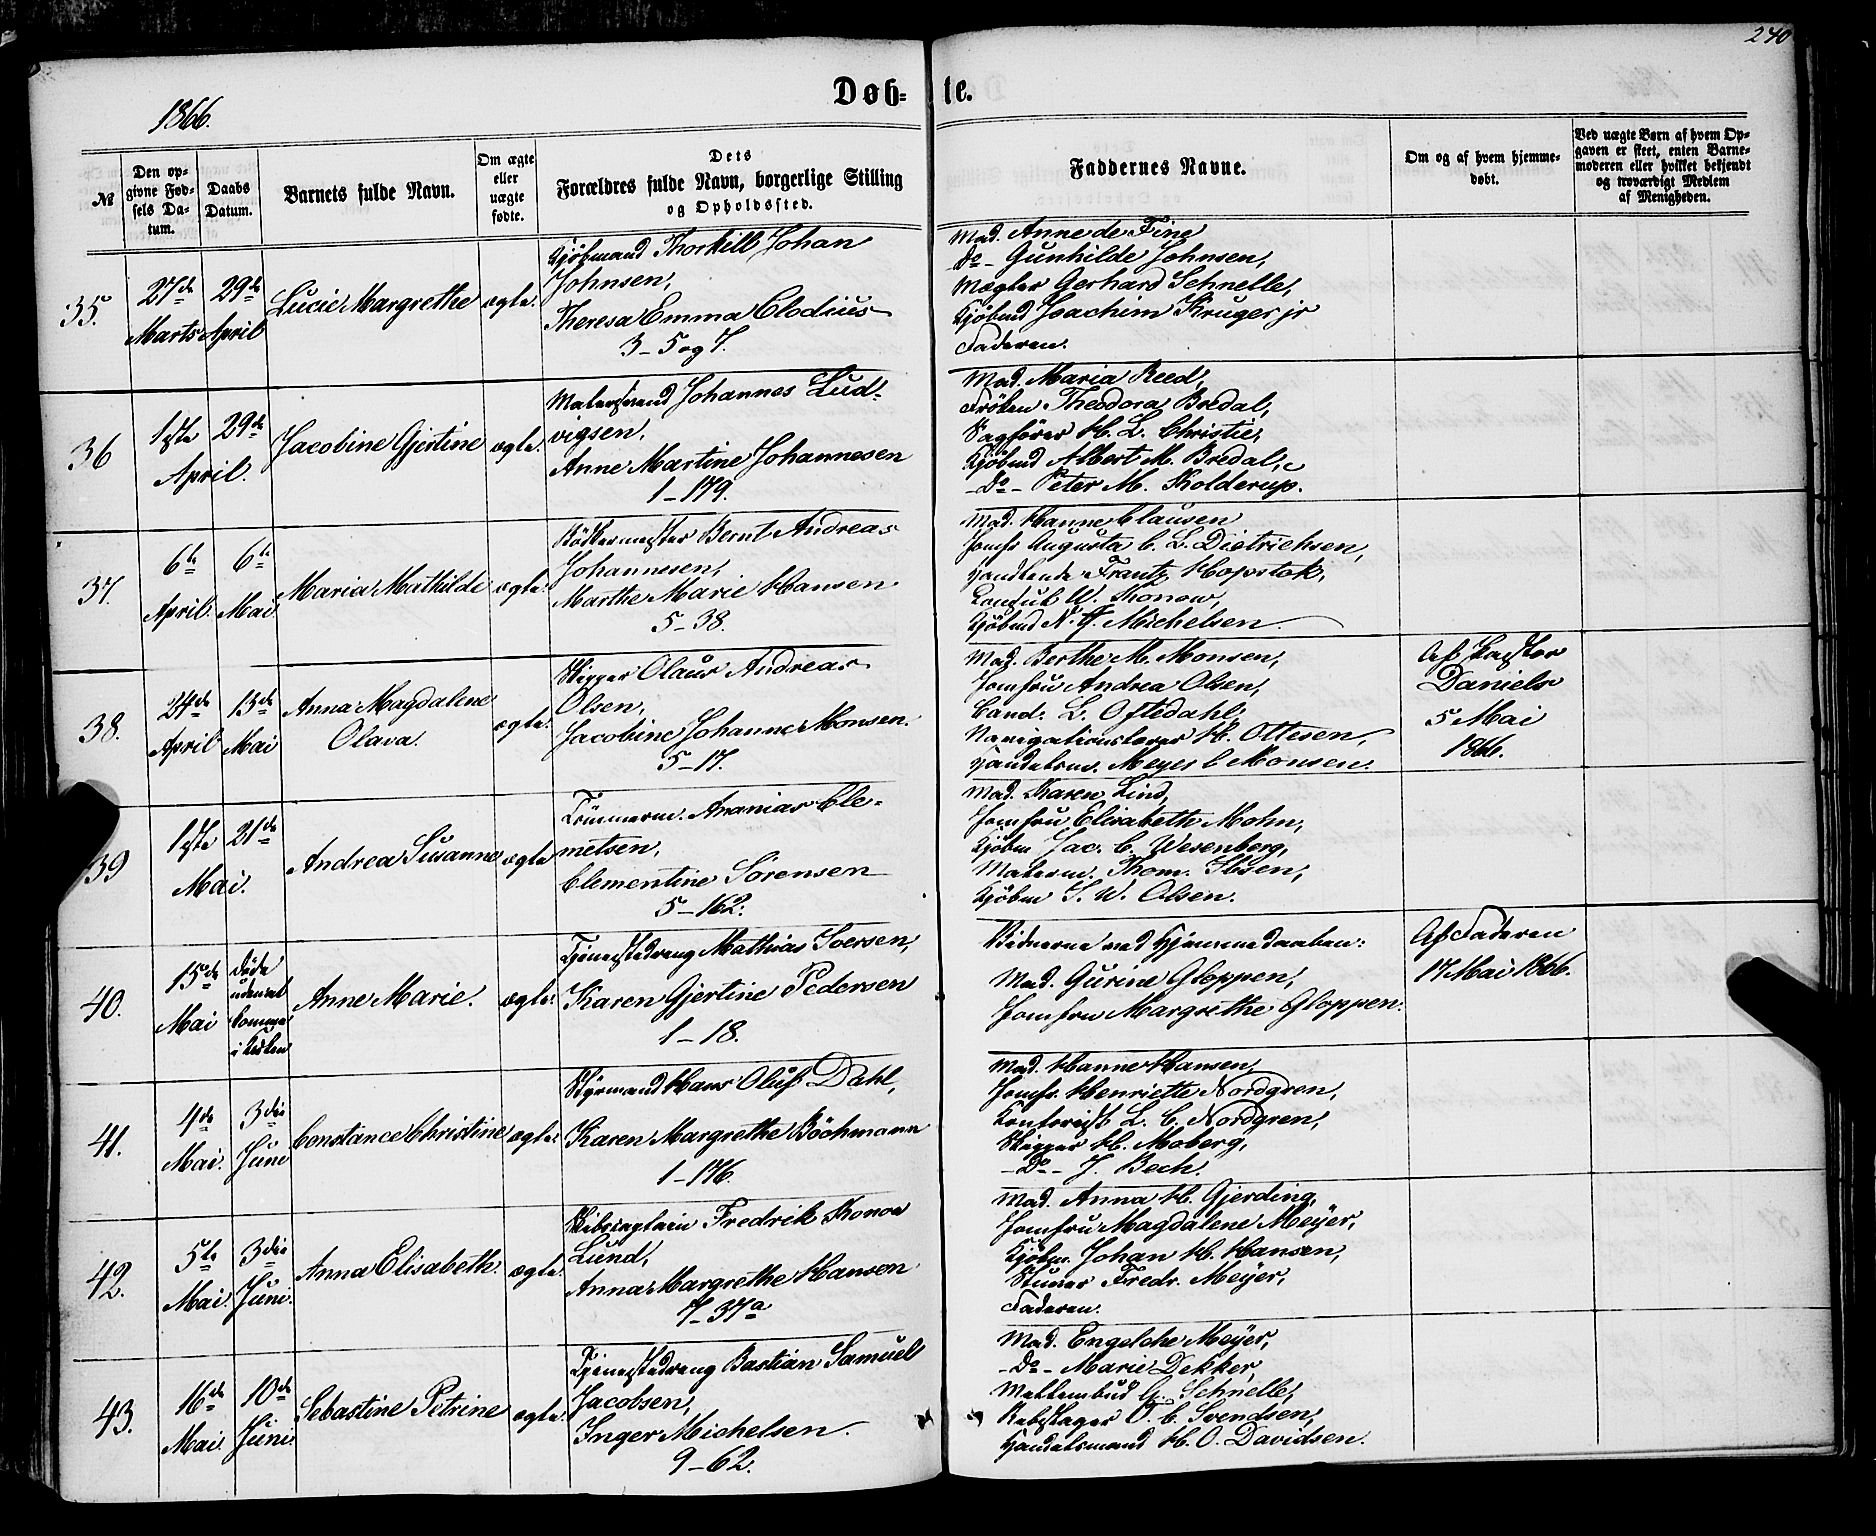 240
1866.
Døb-te.
№
Den op-
givne Fød-
sels Da-
tum.
Daabs
Datum.
Barnets fulde Navn.
Om ægte
eller
uægte
fødte.
Dets
Forældres fulde Navn, borgerlige Stilling
og Opholdssted.
Faddernes Navne.
Om og af hvem hjemme-
døbt.
Ved uægte Børn af hvem Op-
gaven er skeet, enten Barne-
moderen eller hvilket bekjendt
og troværdigt Medlem
af Menigheden.
35.
27de
Marts
29de
April
Lucie Margrethe
ægte.
Kjøbmand Thorkill Johan
Johnsen,
Theresa Emma Clodius
3-5 og 7.
Mad. Anne de Fine
Do- Gunhilde Johnsen,
Mægler Gerhard Schnelle,
Kjøbmd Joachim Kruger jr
Faderen.
36
1ste
29de
April.
Jacobine Gjertine
ægte.
Matersvend Johannes Lud-
vigsen,
Anne Martine Johannesen
1-179.
Mad. Maria Reed,
Frøken Theodora Bredal,
Sagfører H. L. Christie,
Kjøbmd Albert M. Bredal,
-Do- Peter M. Kolderup.
37.
6te
April.
6te
Mai
Maria Mathilde
ægte.
Bødkermester Bernt Andreas
Johannesen,
Marthe Marie Hansen
5-38.
Mad. Hanne Clausen
Jomfr Augusta C. L. Dietrichsen,
Handlende Frantz Hopstok,
Consul W. Konow,
Kjøbmd N. J. Michelsen
38.
24de
April
13de
Mai
Anna Magdalene
Olava.
ægte.
Skipper Olaus Andreas
Olsen,
Jacobine Johanne Monsen.
5-17.
Mad. Berthe M. Monsen,
Jomfru Andrea Olsen,
Cand. L. Oftedahl,
Navigationslærer H. Ottesen,
Handelsm. Meyer C Monsen.
Af Pastor
Daniels
5 Mai
1866.
39
1ste
21de
Mai.
Andrea Susanne
ægte
Tømmerm. Ananias Cle-
metsen,
Clementine Sørensen
5-162.
Mad. Karen Lind,
Jomfru Elisabeth Mohn,
Kjøbm Jac. C. Wesenberg,
Malerm. Thom. Ibsen,
Kjøbm S. W. Olsen.
40.
15de
Mai
døde
uden at
komme
i Kirken
Anne Marie.
ægte.
Tjenestedreng Mathias Iversen,
Karen Gjertine Pedersen
1-18.
Vidnerne ved Hjemmedaaben:
Mad. Gurine Gloppen,
Jomfru Margrethe Gloppen.
Af Faderen
17 Mai 1866.
41.
4de
Mai.
3die
Juni
Constance Christine
ægte.
Styrmand Hans Oluf Dahl,
Karen Margrethe Böchmann
1-176.
Mad. Hanne Hansen,
Jomfr. Henriette Nordgren,
Kontorist L. C. Nordgren,
Skipper H. Moberg,
-Do- J. Bech.
42.
5te
Mai.
3die
Juni.
Anna Elisabeth.
ægte.
Skibscaptain Fredrik Konow
Lund,
Anna Margrethe Hansen
7-37a
Mad. Anna H. Gjerding,
Jomfru Magdalene Meyer,
Kjøbm. Johan H. Hansen,
Stuerer Fredr. Meyer,
Faderen.
43.
16de
Mai
10de
Juni
Sebastine Petrine
ægte.
Tjenestedreng Bastian Samuel
Jacobsen,
Inger Michelsen.
9-62.
Mad. Engelche Meyer,
-Do- Marie Dekker,
G. Schnelle,
Rebslager O. C. Svendsen,
Handelsmand H. O. Davidsen.